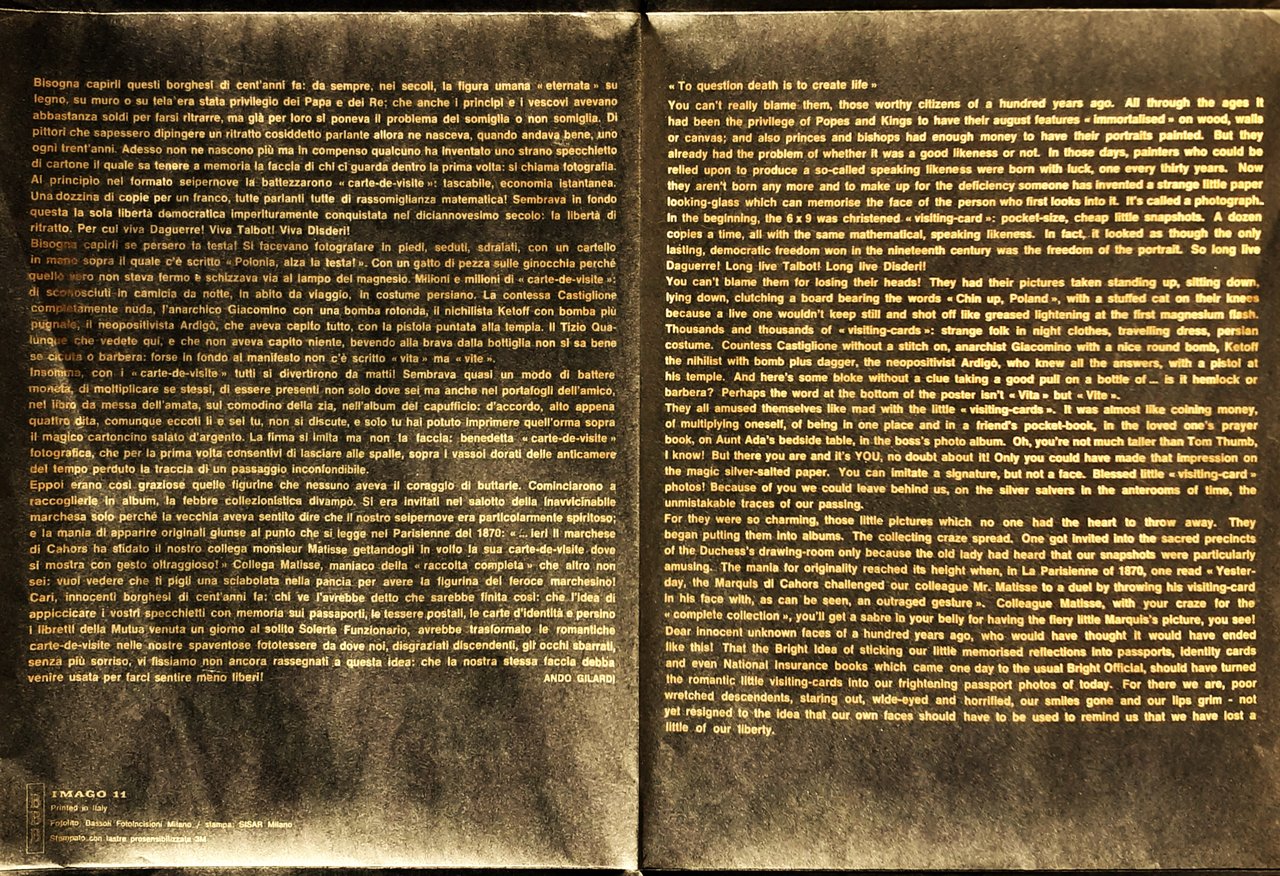 Bisogna capirli questi borghesi di cent'anni fa: da sempre, nei secoli, la figura umana « eternata » su
legno, su muro o su tela era stata privilegio dei Papa e dei Re; che anche i principi e i vescovi avevano
abbastanza soldi per farsi ritrarre, ma già per loro si poneva il problema del somiglia o non somiglia. Di
pittori che sapessero dipingere un ritratto cosiddetto parlante allora ne nasceva, quando andava bene, uno
ogni trent'anni. Adesso non ne nascono più ma in compenso qualcuno ha inventato uno strano specchietto
di cartone il quale sa tenere a memoria la faccia di chi ci guarda dentro la prima volta: si chiama fotografia.
Al principio nel formato seipernove la battezzarono « carte-de-visite »: tascabile, economia istantanea.
Una dozzina di copie per un franco, tutte parlanti tutte di rassomiglianza matematica! Sembrava in fondo
questa la sola libertà democratica imperituramente conquistata nel diciannovesimo secolo: la libertà di
ritratto. Per cui viva Daguerre! Viva Talbot! Viva Disderi!
Bisogna capirli se persero la testa! Si facevano fotografare in piedi, seduti, sdraiati, con un cartello
in mano sopra il quale c'è scritto « Polonia, alza la testa! ». Con un gatto di pezza sulle ginocchia perché
quello vero non stava fermo e schizzava via al lampo del magnesio. Milioni e milioni di « carte-de-visite »:
di sconosciuti in camicia da notte, in abito da viaggio, in costume persiano. La contessa Castiglione
completamente nuda, l'anarchico Giacomino con una bomba rotonda, il nichilista Ketoff con bomba più
pugnale, il neopositivista Ardigò, che aveva capito tutto, con la pistola puntata alla tempia. Il Tizio Qua-
lunque che vedete qui, e che non aveva capito niente, bevendo alla brava dalla bottiglia non si sa bene
se cicuta o barbera: forse in fondo al manifesto non c'è scritto « vita » ma « vite ».
Insomma, con i « carte-de-visite » tutti si divertirono da matti! Sembrava quasi un modo di battere
moneta, di moltiplicare se stessi, di essere presenti non solo dove sei ma anche nel portafogli dell'amico,
nel libro da messa dell'amata, sul comodino della zia, nell'album del capufficio: d'accordo, alto appena
quattro dita, comunque eccoti lì e sei tu, non si discute, e solo tu hai potuto imprimere quell'orma sopra
il magico cartoncino salato d'argento. La firma si imita ma non la faccia: benedetta « carte-de-visite »
fotografica, che per la prima volta consentivi di lasciare alle spalle, sopra i vassoi dorati delle anticamere
del tempo perduto la traccia di un passaggio inconfondibile.
Eppoi erano così graziose quelle figurine che nessuno aveva il coraggio di buttarle. Cominciarono a
raccoglierle in album, la febbre collezionistica divampò. Si era invitati nel salotto della inavvicinabile
marchesa solo perché la vecchia aveva sentito dire che il nostro seipernove era particolarmente spiritoso;
e la mania di apparire originali giunse al punto che si legge nel Parisienne del 1870: « ... ieri il marchese
di Cahors ha sfidato il nostro collega monsieur Matisse gettandogli in volto la sua carte-de-visite dove
si mostra con gesto oltraggioso! » Collega Matisse, maniaco della « raccolta completa » che altro non
sei: vuoi vedere che ti pigli una sciabolata nella pancia per avere la figurina del feroce marchesino!
Cari, innocenti borghesi di cent'anni fa: chi ve l'avrebbe detto che sarebbe finita così: che l'idea di
appiccicare i vostri specchietti con memoria sui passaporti, le tessere postali, le carte d'identità e persino
i libretti della Mutua venuta un giorno al solito Solerte Funzionario, avrebbe trasformato le romantiche
carte-de-visite nelle nostre spaventose fototessere da dove noi, disgraziati discendenti, gli occhi sbarrati,
senza più sorriso, vi fissiamo non ancora rassegnati a questa idea: che la nostra stessa faccia debba
venire usata per farci sentire meno liberi!
ANDO GILARDI
IMAGO 11
Printed in Italy
Fotolito: Bassoli Fotoincisioni Milano / stampa: SISAR Milano
Stampato con lastre presensibilizzate 3M
« To question death is to create life »
You can't really blame them, those worthy citizens of a hundred years ago. All through the ages it
had been the privilege of Popes and Kings to have their august features « immortalised » on wood, walls
or canvas; and also princes and bishops had enough money to have their portraits painted. But they
already had the problem of whether it was a good likeness or not. In those days, painters who could be
relied upon to produce a so-called speaking likeness were born with luck, one every thirty years. Now
they aren't born any more and to make up for the deficiency someone has invented a strange little paper
looking-glass which can memorise the face of the person who first looks into it. It's called a photograph.
In the beginning, the 6 x 9 was christened « visiting-card »: pocket-size, cheap little snapshots. A dozen
copies a time, all with the same mathematical, speaking likeness. In fact, it looked as though the only
lasting, democratic freedom won in the nineteenth century was the freedom of the portrait. So long live
Daguerre! Long live Talbot! Long live Disderi!
You can't blame them for losing their heads! They had their pictures taken standing up, sitting down,
lying down, clutching a board bearing the words « Chin up, Poland », with a stuffed cat on their knees
because a live one wouldn't keep still and shot off like greased lightening at the first magnesium flash.
Thousands and thousands of « visiting-cards »: strange folk in night clothes, travelling dress, persian
costume. Countess Castiglione without a stitch on, anarchist Giacomino with a nice round bomb, Ketoff
the nihilist with bomb plus dagger, the neopositivist Ardigò, who knew all the answers, with a pistol at
his temple. And here's some bloke without a clue taking a good pull on a bottle of ... is it hemlock or
barbera? Perhaps the word at the bottom of the poster isn't « Vita » but « Vite ».
They all amused themselves like mad with the little « visiting-cards ». It was almost like coining money,
of multiplying oneself, of being in one place and in a friend's pocket-book, in the loved one's prayer
book, on Aunt Ada's bedside table, in the boss's photo album. Oh, you're not much taller than Tom Thumb,
I know! But there you are and it's YOU, no doubt about it! Only you could have made that impression on
the magic silver-salted paper. You can imitate a signature, but not a face. Blessed little « visiting-card »
photos! Because of you we could leave behind us, on the silver salvers in the anterooms of time, the
unmistakable traces of our passing.
For they were so charming, those little pictures which no one had the heart to throw away. They
began putting them into albums. The collecting craze spread. One got invited into the sacred precincts
of the Duchess's drawing-room only because the old lady had heard that our snapshots were particularly
amusing. The mania for originality reached its height when, in La Parisienne of 1870, one read « Yester-
day, the Marquis di Cahors challenged our colleague Mr. Matisse to a duel by throwing his visiting-card
in his face with, as can be seen, an outraged gesture ». Colleague Matisse, with your craze for the
« complete collection », you'll get a sabre in your belly for having the fiery little Marquis's picture, you see!
Dear innocent unknown faces of a hundred years ago, who would have thought it would have ended
like this! That the Bright Idea of sticking our little memorised reflections into passports, identity cards
and even National Insurance books which came one day to the usual Bright Official, should have turned
the romantic little visiting-cards into our frightening passport photos of today. For there we are, poor
wretched descendents, staring out, wide-eyed and horrified, our smiles gone and our lips grim - not
yet resigned to the idea that our own faces should have to be used to remind us that we have lost a
little of our liberty.